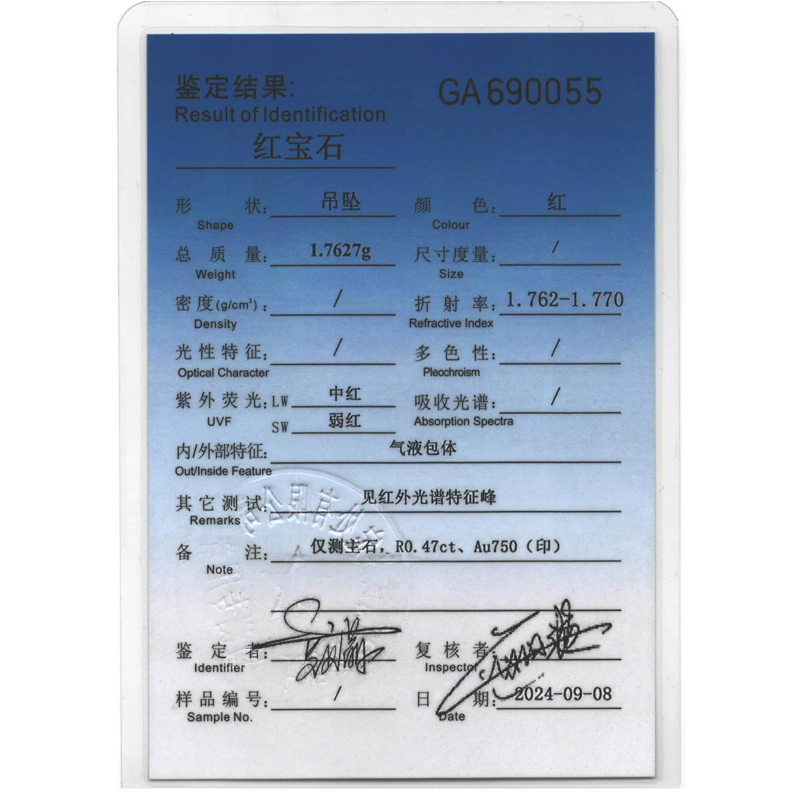 鉴定结果:
GA690055
Result of Identification
红宝石
形 状: 吊坠 颜 色: 红
Shape Colour
总 质 量: 1.7627g 尺寸度量: /
Weight Size
密 度(g/cm³): / 折 射 率: 1.762-1.770
Density Refractive Index
光性特征: / 多 色 性: /
Optical Character Pleochroism
紫外荧光: LW 中红 吸收光谱: /
UVF SW 弱红 Absorption Spectra
内/外部特征: 气液包体
Out/Inside Feature
其它测试: 见红外光谱特征峰
Remarks
备 注: 仅测主石, R0.47ct、Au750（印）
Note
鉴 定 者: 复 核 者:
Identifier Inspector
样品编号: / 日 期: 2024-09-08
Sample No. Date